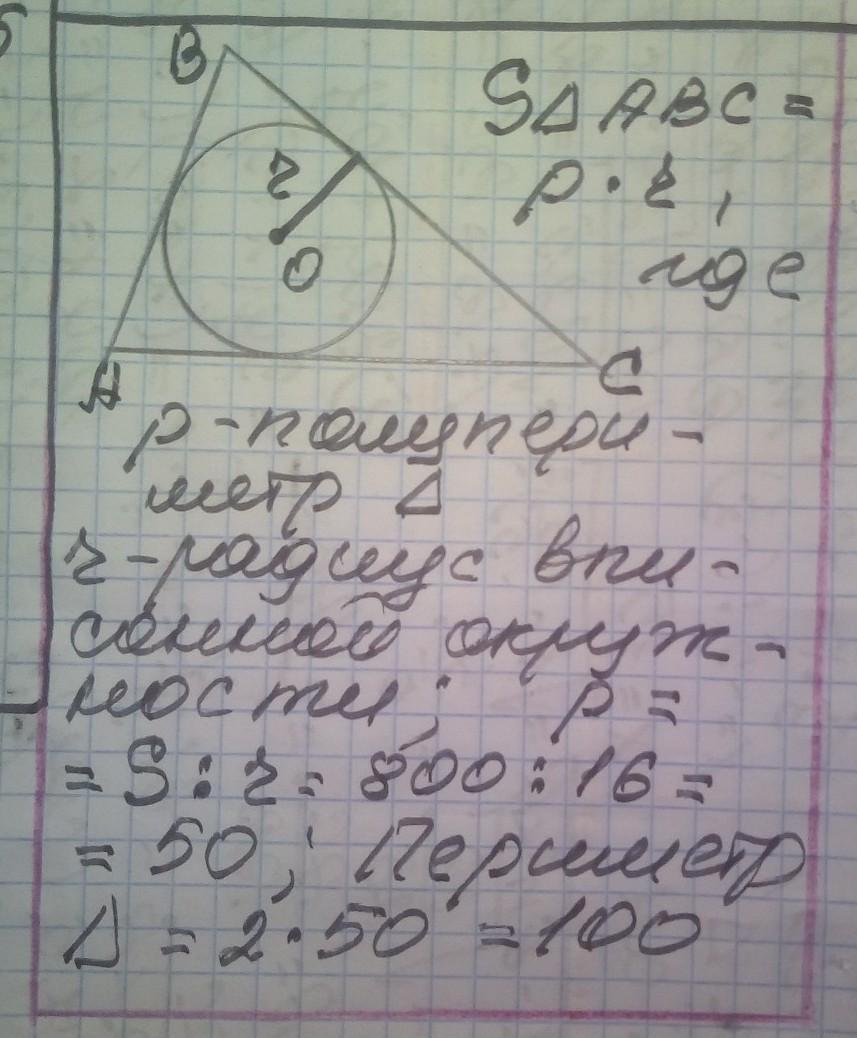 B
S△ABC =
r
p · r,
O
где
A
C
p - полупери -
метр △
r - радиус впи -
санной окруж -
ности; p =
= S : r = 800 : 16 =
= 50; Периметр
△ = 2 · 50 = 100